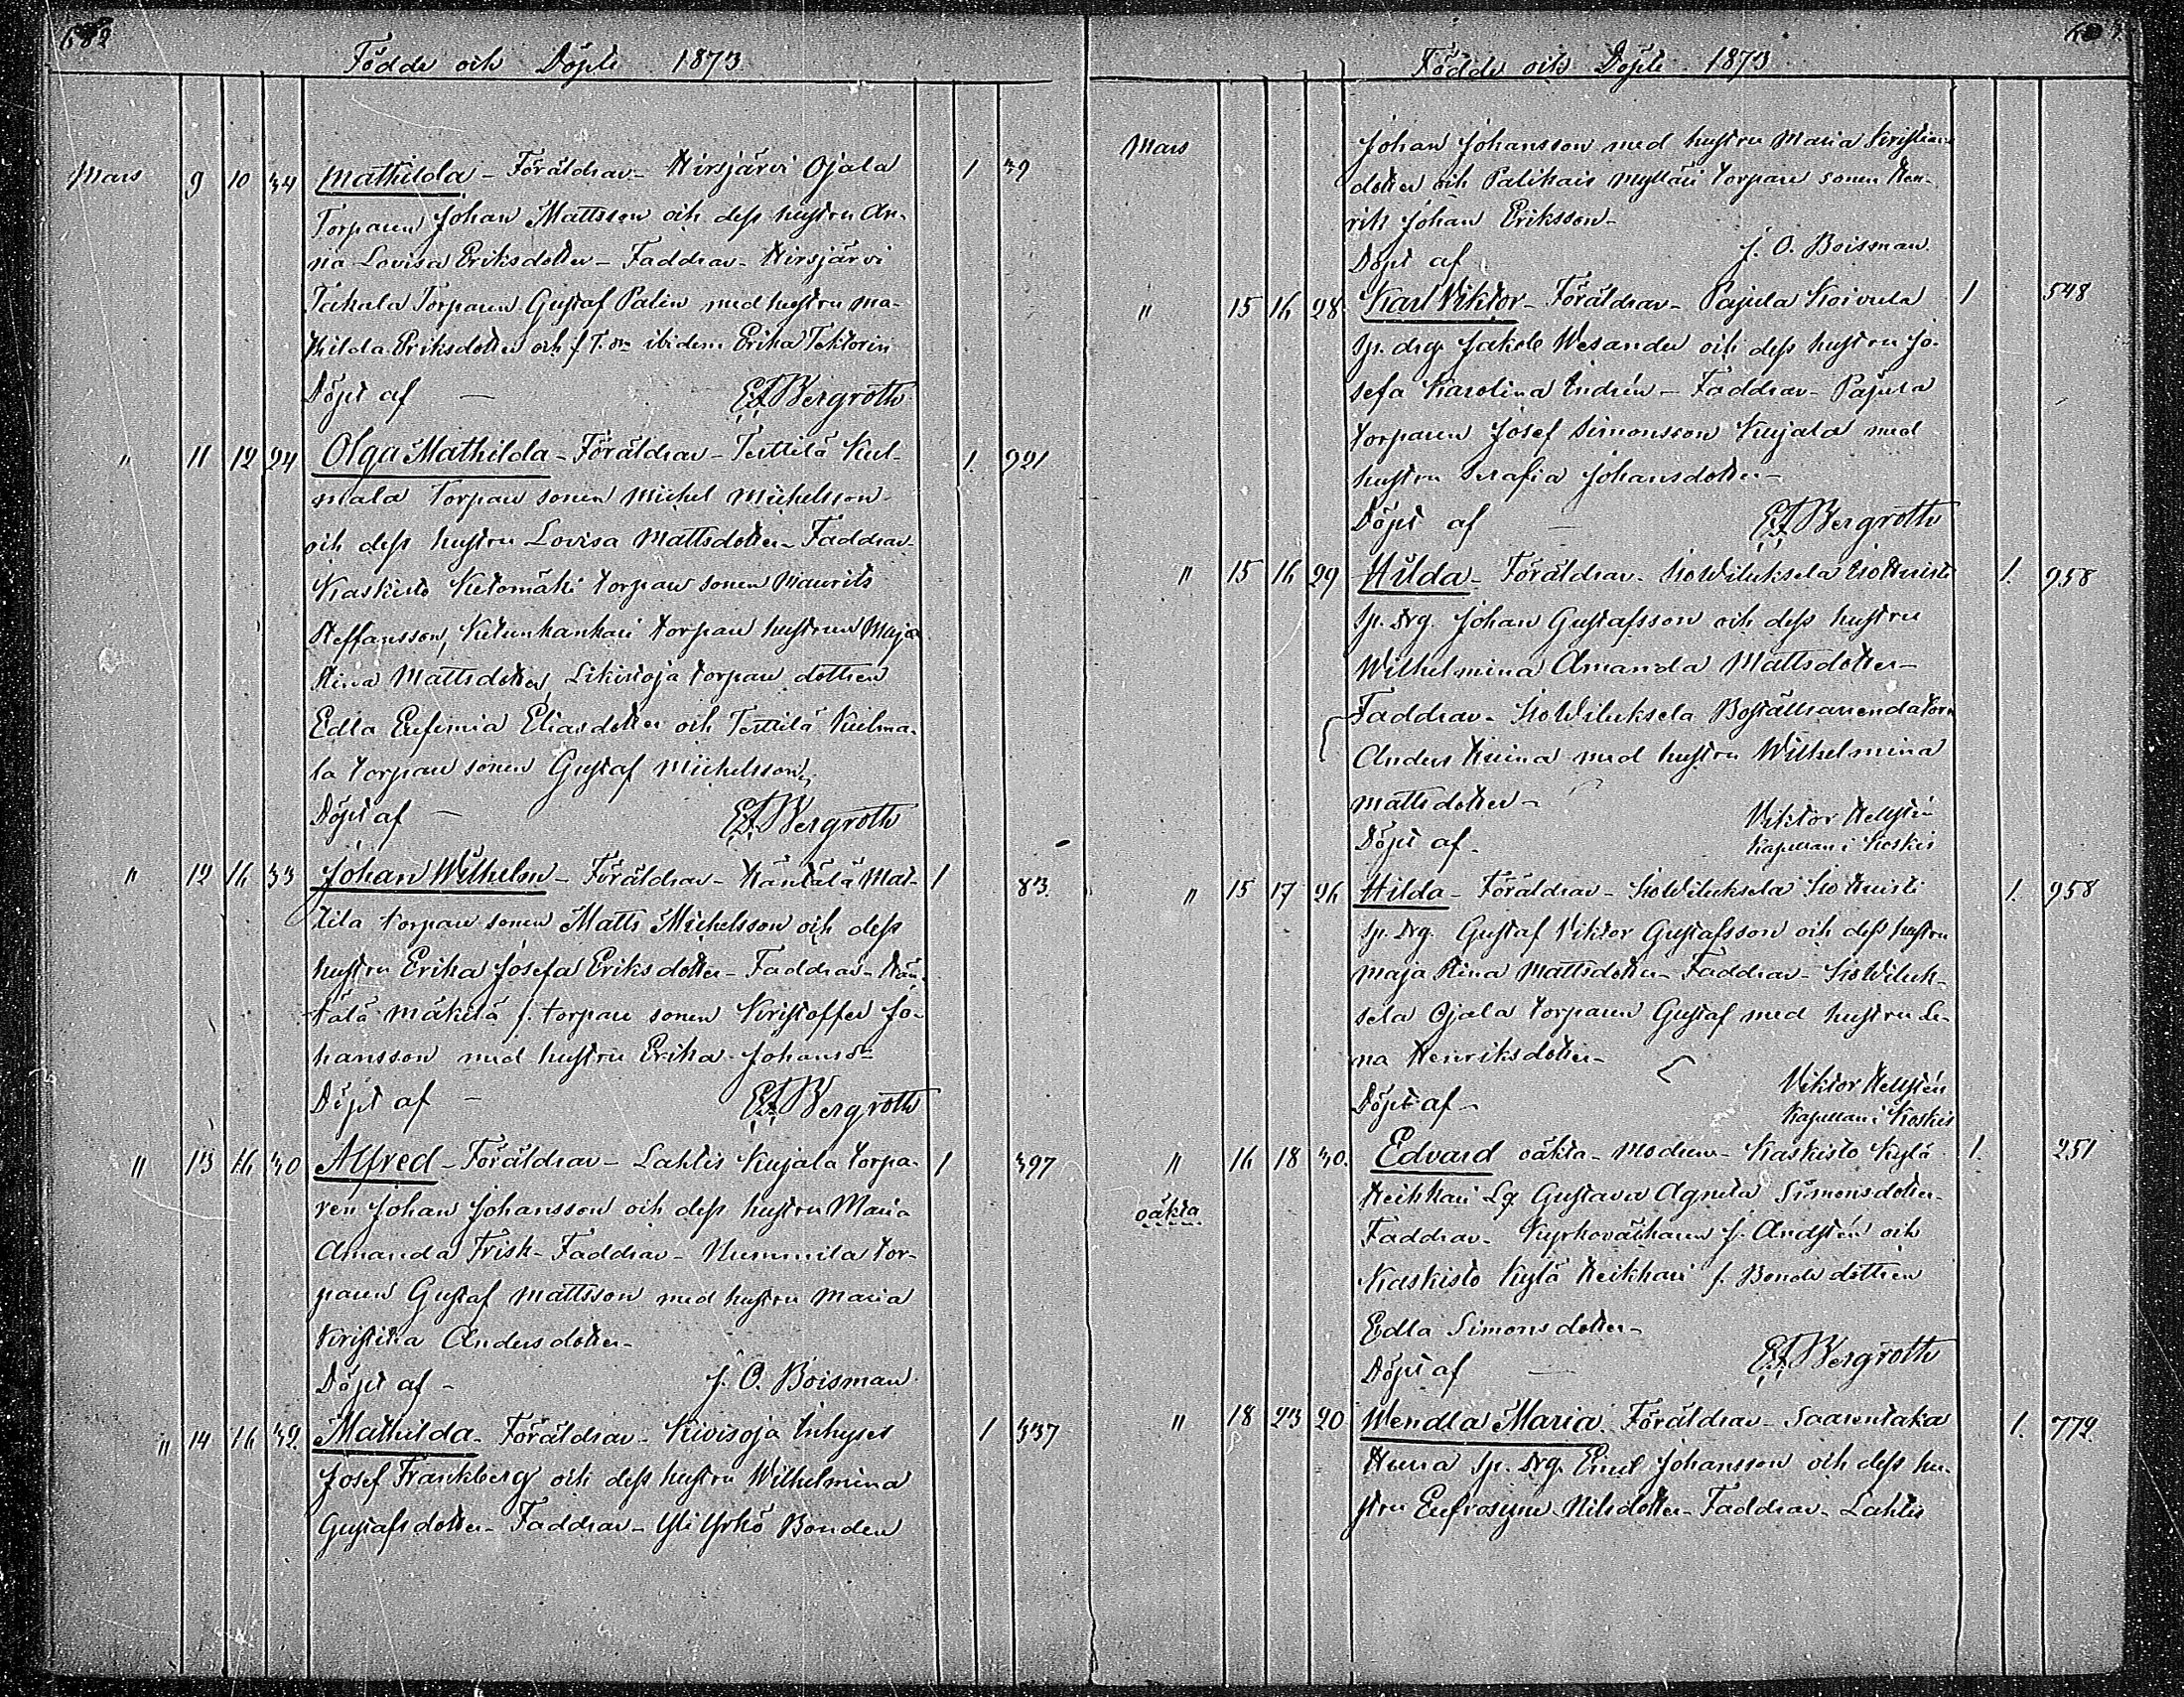 682
Födde och Döpte 1873
Mars 9 10 34 Mathilda - Föräldrar - Hirsjärvi Ojala 1 39
Torparen Johan Mattsson och dess hustru An-
na Lovisa Eriksdotter - Faddrar - Hirsjärvi
Torparen Gustaf Palin med hustru Ma-
thilda Eriksdotter och ibidem Erika
Döpt af - E.F. Bergroth
" 11 12 24 Olga Mathilda - Föräldrar - Terttilä Kul-
mala torpare sonen Michel Michelsson 1. 921
och dess hustru Lovisa Mattsdotter - Faddrar -
Kaskisto Ketomäki torpare sonen Maurits
Steffansson, torpare hustrun Maja
Stina Mattsdotter, torpare dottren
Edla Eufemia Eliasdotter och Terttilä Kulma-
la torpare sonen Gustaf Michelsson,
Döpt af - E.F. Bergroth
" 12 16 33 Johan Wilhelm - Föräldrar - Häntälä Mat- 1 83.
tila torpare sonen Matts Michelsson och dess
hustru Erika Josefa Eriksdotter - Faddrar - Hän-
tälä Mäkilä f. torpare sonen Kristoffer Jo-
hansson med hustru Erika Johansdr
Döpt af - E.F. Bergroth
" 13 16 30 Alfred - Föräldrar - Lahtis Kujala torpa- 1 397
ren Johan Johansson och dess hustru Maria
Amanda Frisk - Faddrar - Nummila tor-
paren Gustaf Mattsson med hustru Maria
Kristina Andersdotter -
Döpt af - J. O. Boisman
" 14 16 32. Mathilda - Föräldrar - Kivisoja Inhyses 1 337
Josef Frankberg och dess hustru Wilhelmina
Gustafsdotter - Faddrar - Yli Yrkö Bonden
Födde och Döpte 1873
Mars Johan Johansson med hustru Maria Kristians-
dotter och Palikais Mylläri torpare sonen Hen-
rik Johan Eriksson -
Döpt af J. O. Boisman
" 15 16 28. Karl Viktor - Föräldrar - Pajula Koivula 1 548
Sp. drg. Jakob Wesander och dess hustru Jo-
sefa Karolina Andrén - Faddrar - Pajula
torparen Josef Simonsson Kujala med
hustru Serafia Johansdotter -
Döpt af - E.F. Bergroth
" 15 16 29 Hilda - Föräldrar - Iso Wiluksela Isotuisti 1. 958
Sp. drg. Johan Gustafsson och dess hustru
Wilhelmina Amanda Mattsdotter -
Faddrar - Iso Wiluksela Boställsarrendatorn
Anders Heina med hustru Wilhelmina
Mattsdotter -
Viktor Hellstén
Döpt af - Kapellan i Koskis
" 15 17 26 Hilda - Föräldrar - Iso Wiluksela Isotuisti 1. 958
Sp. drg. Gustaf Viktor Gustafsson och dess hustru
Maja Stina Mattsdotter - Faddrar - Iso Wiluk-
sela Ojala torparen Gustaf med hustru Le-
na Henriksdotter -
Viktor Hellstén
Döpt af - Kapellan i Koskis
" 16 18 30. Edvard oäkta - Modren - Kaskisto Kylä 1. 251
oäkta
Heikkari Gustava Agneta Simonsdotter -
Faddrar - Kyrkovärkaren J. Andstén och
Kaskisto Kylä Heikkari f. Bonde dottren
Edla Simonsdotter -
Döpt af - E.F. Bergroth
" 18 23 20 Wendla Maria. Föräldrar - Saarentaka 1. 772.
Sp. drg. Emil Johansson och dess hu-
stru Eufrosyne Nilsdotter - Faddrar - Lahtis